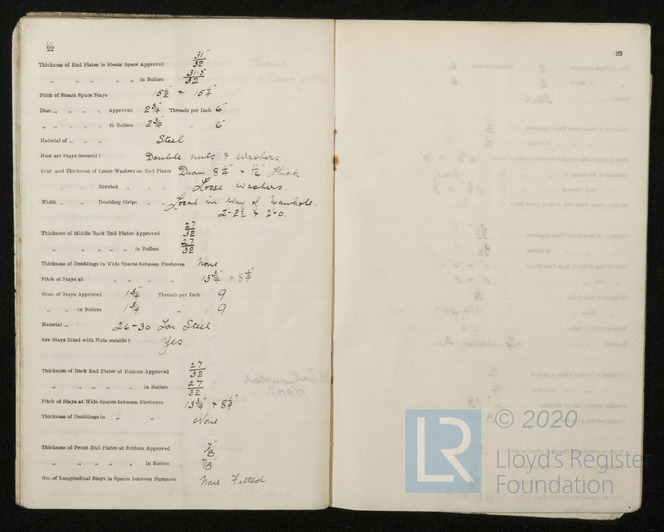 22
Thickness of End Plates in Steam Space Approved 31/32"
„ „ „ „ „ in Boilers 31.5/32
Pitch of Steam Space Stays 15½" + 15¼"
Diar. „ „ „ „ Approved 2¾" Threads per Inch 6"
„ „ „ „ „ in Boilers 2¾" „ 6"
Material of „ „ „ Steel
How are Stays Secured? Double nuts & washers
Diar. and Thickness of Loose Washers on End Plates Diam 8¼" + Thick
„ „ Riveted „ „ „ Loose Washers
Width „ „ Doubling Strips „ „ Local in way of manhole.
2-2½ & 2-0.
Thickness of Middle Back End Plates Approved 27/32"
„ „ „ „ „ in Boilers 27/32
Thickness of Doublings in Wide Spaces between Fireboxes None
Pitch of Stays at „ „ „ „ 13¾" + 8¼"
Diar. of Stays Approved 1¾" Threads per Inch 9
„ „ in Boilers 1¾" „ 9
Material „ 26-30 Ton Steel
Are Stays fitted with Nuts outside? Yes.
Thickness of Back End Plates at Bottom Approved 27/32
„ „ „ „ „ in Boilers 27/32
Pitch of Stays at Wide Spaces between Fireboxes 13¾" + 8¼"
Thickness of Doublings in „ „ None
Thickness of Front End Plates at Bottom Approved 7/8"
„ „ „ „ „ in Boilers 7/8"
No. of Longitudinal Stays in Spaces between Furnaces None Fitted
23
LR
© 2020
Lloyd's Register
Foundation